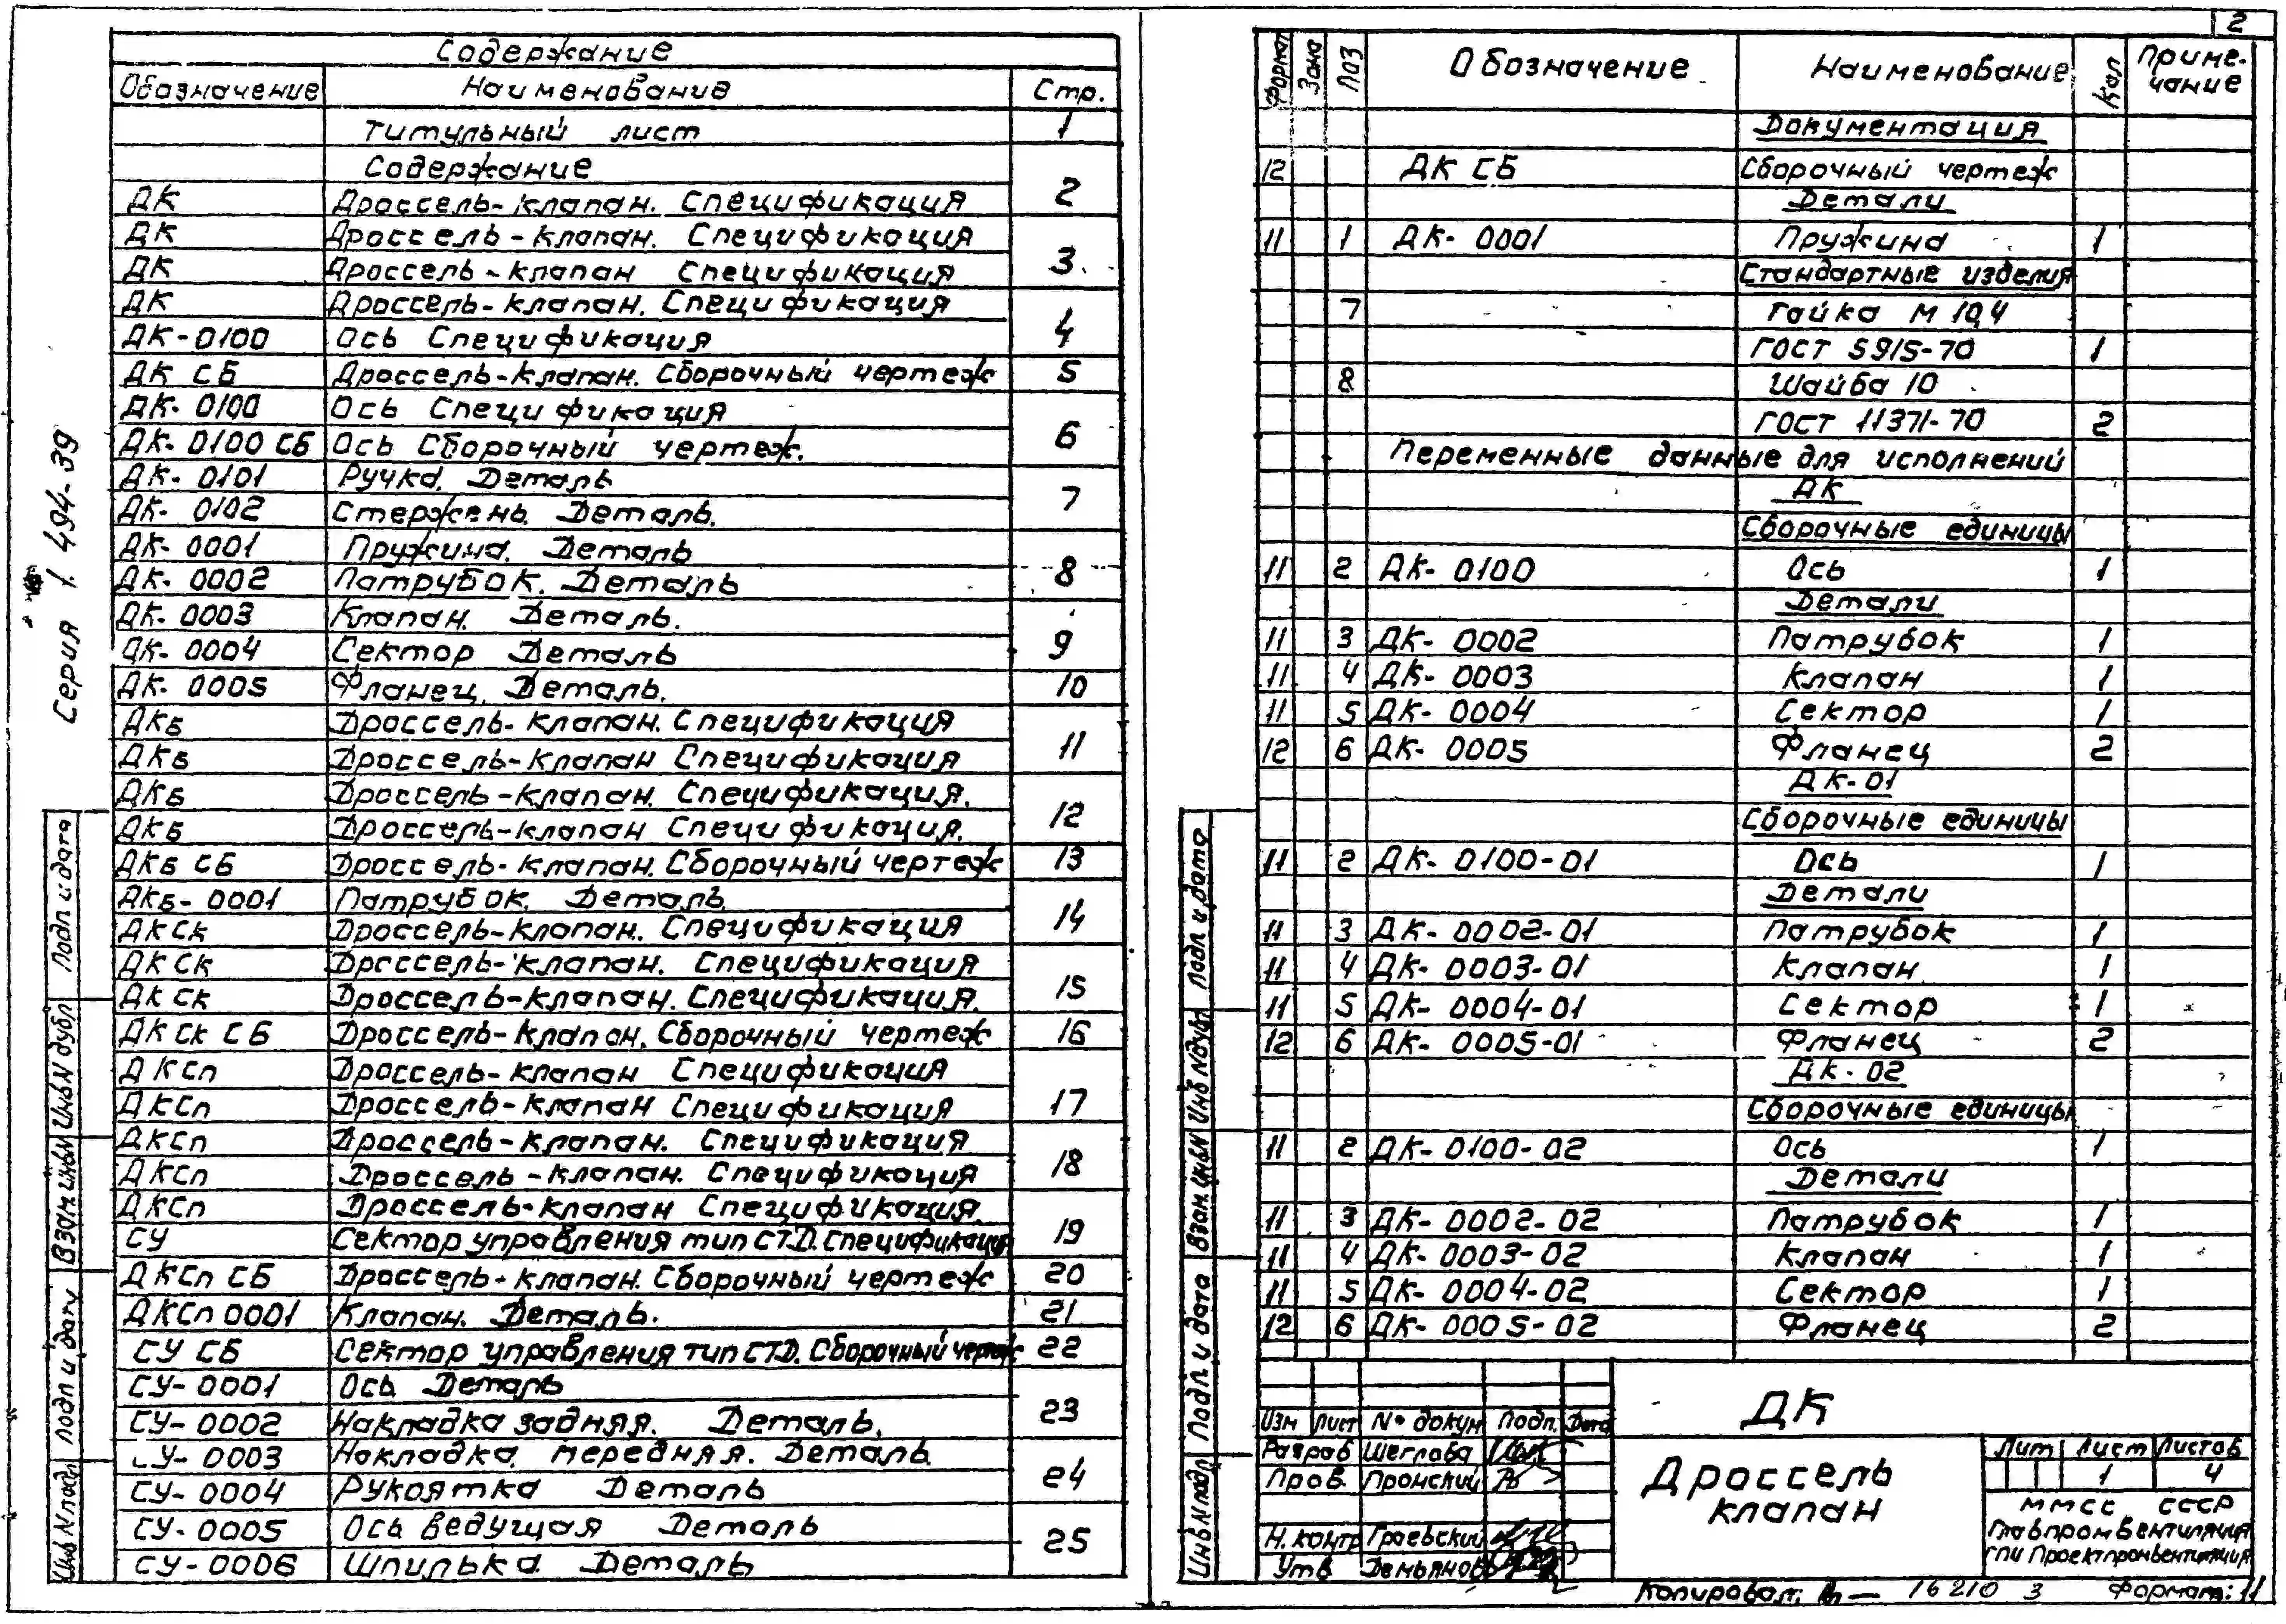 2
Серия 1.494-39
Содержание
Обозначение Наименование Стр.
Титульный лист 1
Содержание
2
ДК Дроссель-клапан. Спецификация
ДК Дроссель-клапан. Спецификация
3
ДК Дроссель-клапан Спецификация
ДК Дроссель-клапан. Спецификация
4
ДК-0100 Ось Спецификация
ДК СБ Дроссель-клапан. Сборочный чертеж 5
ДК-0100 Ось Спецификация
6
ДК-0100 СБ Ось Сборочный чертеж.
ДК-0101 Ручка. Деталь
7
ДК-0102 Стержень. Деталь.
ДК-0001 Пружина. Деталь
8
ДК-0002 Патрубок. Деталь
ДК-0003 Клапан. Деталь.
9
ДК-0004 Сектор Деталь
ДК-0005 Фланец. Деталь. 10
ДКБ Дроссель-клапан. Спецификация
11
ДКБ Дроссель-клапан Спецификация
ДКБ Дроссель-клапан. Спецификация.
12
ДКБ Дроссель-клапан Спецификация.
ДКБ СБ Дроссель-клапан. Сборочный чертеж 13
ДКБ-0001 Патрубок. Деталь.
14
ДКСк Дроссель-клапан. Спецификация
ДКСк Дроссель-клапан. Спецификация
15
ДКСк Дроссель-клапан. Спецификация.
ДКСк СБ Дроссель-клапан. Сборочный чертеж 16
ДКСп Дроссель-клапан Спецификация
17
ДКСп Дроссель-клапан Спецификация
ДКСп Дроссель-клапан. Спецификация
18
ДКСп Дроссель-клапан. Спецификация
ДКСп Дроссель-клапан Спецификация.
19
СУ Сектор управления тип СТД. Спецификация
ДКСп СБ Дроссель-клапан. Сборочный чертеж 20
ДКСп 0001 Клапан. Деталь. 21
СУ СБ Сектор управления тип СТД. Сборочный чертеж 22
СУ-0001 Ось Деталь
23
СУ-0002 Накладка задняя. Деталь.
СУ-0003 Накладка передняя. Деталь.
24
СУ-0004 Рукоятка Деталь
СУ-0005 Ось ведущая Деталь
25
СУ-0006 Шпилька Деталь
Подп и дата
Инв N дубл
Взам инв N
Подп и дату
Инв N подл
Формат Зона Поз Обозначение Наименование Кол Приме-
чание
Документация
12 ДК СБ Сборочный чертеж
Детали
11 1 ДК-0001 Пружина 1
Стандартные изделия
7 Гайка М 10,4
ГОСТ 5915-70 1
8 Шайба 10
ГОСТ 11371-70 2
Переменные данные для исполнений
ДК
Сборочные единицы
11 2 ДК-0100 Ось 1
Детали
11 3 ДК-0002 Патрубок 1
11 4 ДК-0003 Клапан 1
11 5 ДК-0004 Сектор 1
12 6 ДК-0005 Фланец 2
ДК-01
Сборочные единицы
11 2 ДК-0100-01 Ось 1
Детали
11 3 ДК-0002-01 Патрубок 1
11 4 ДК-0003-01 Клапан 1
11 5 ДК-0004-01 Сектор 1
12 6 ДК-0005-01 Фланец 2
ДК-02
Сборочные единицы
11 2 ДК-0100-02 Ось 1
Детали
11 3 ДК-0002-02 Патрубок 1
11 4 ДК-0003-02 Клапан 1
11 5 ДК-0004-02 Сектор 1
12 6 ДК-0005-02 Фланец 2
Подп и дата
Инв N дубл
Взам. инв N
Подп и дата
Инв N подл
Изм Лист № докум Подп. Дата
Разраб Шеглова
Пров. Пронский
Н. контр Граевский
Утв Демьянов
ДК
Дроссель
клапан
Лит Лист Листов
1 4
ММСС СССР
Главпромвентиляция
ГПИ Проектпромвентиляция
Копировал: 16210 3 Формат: 11